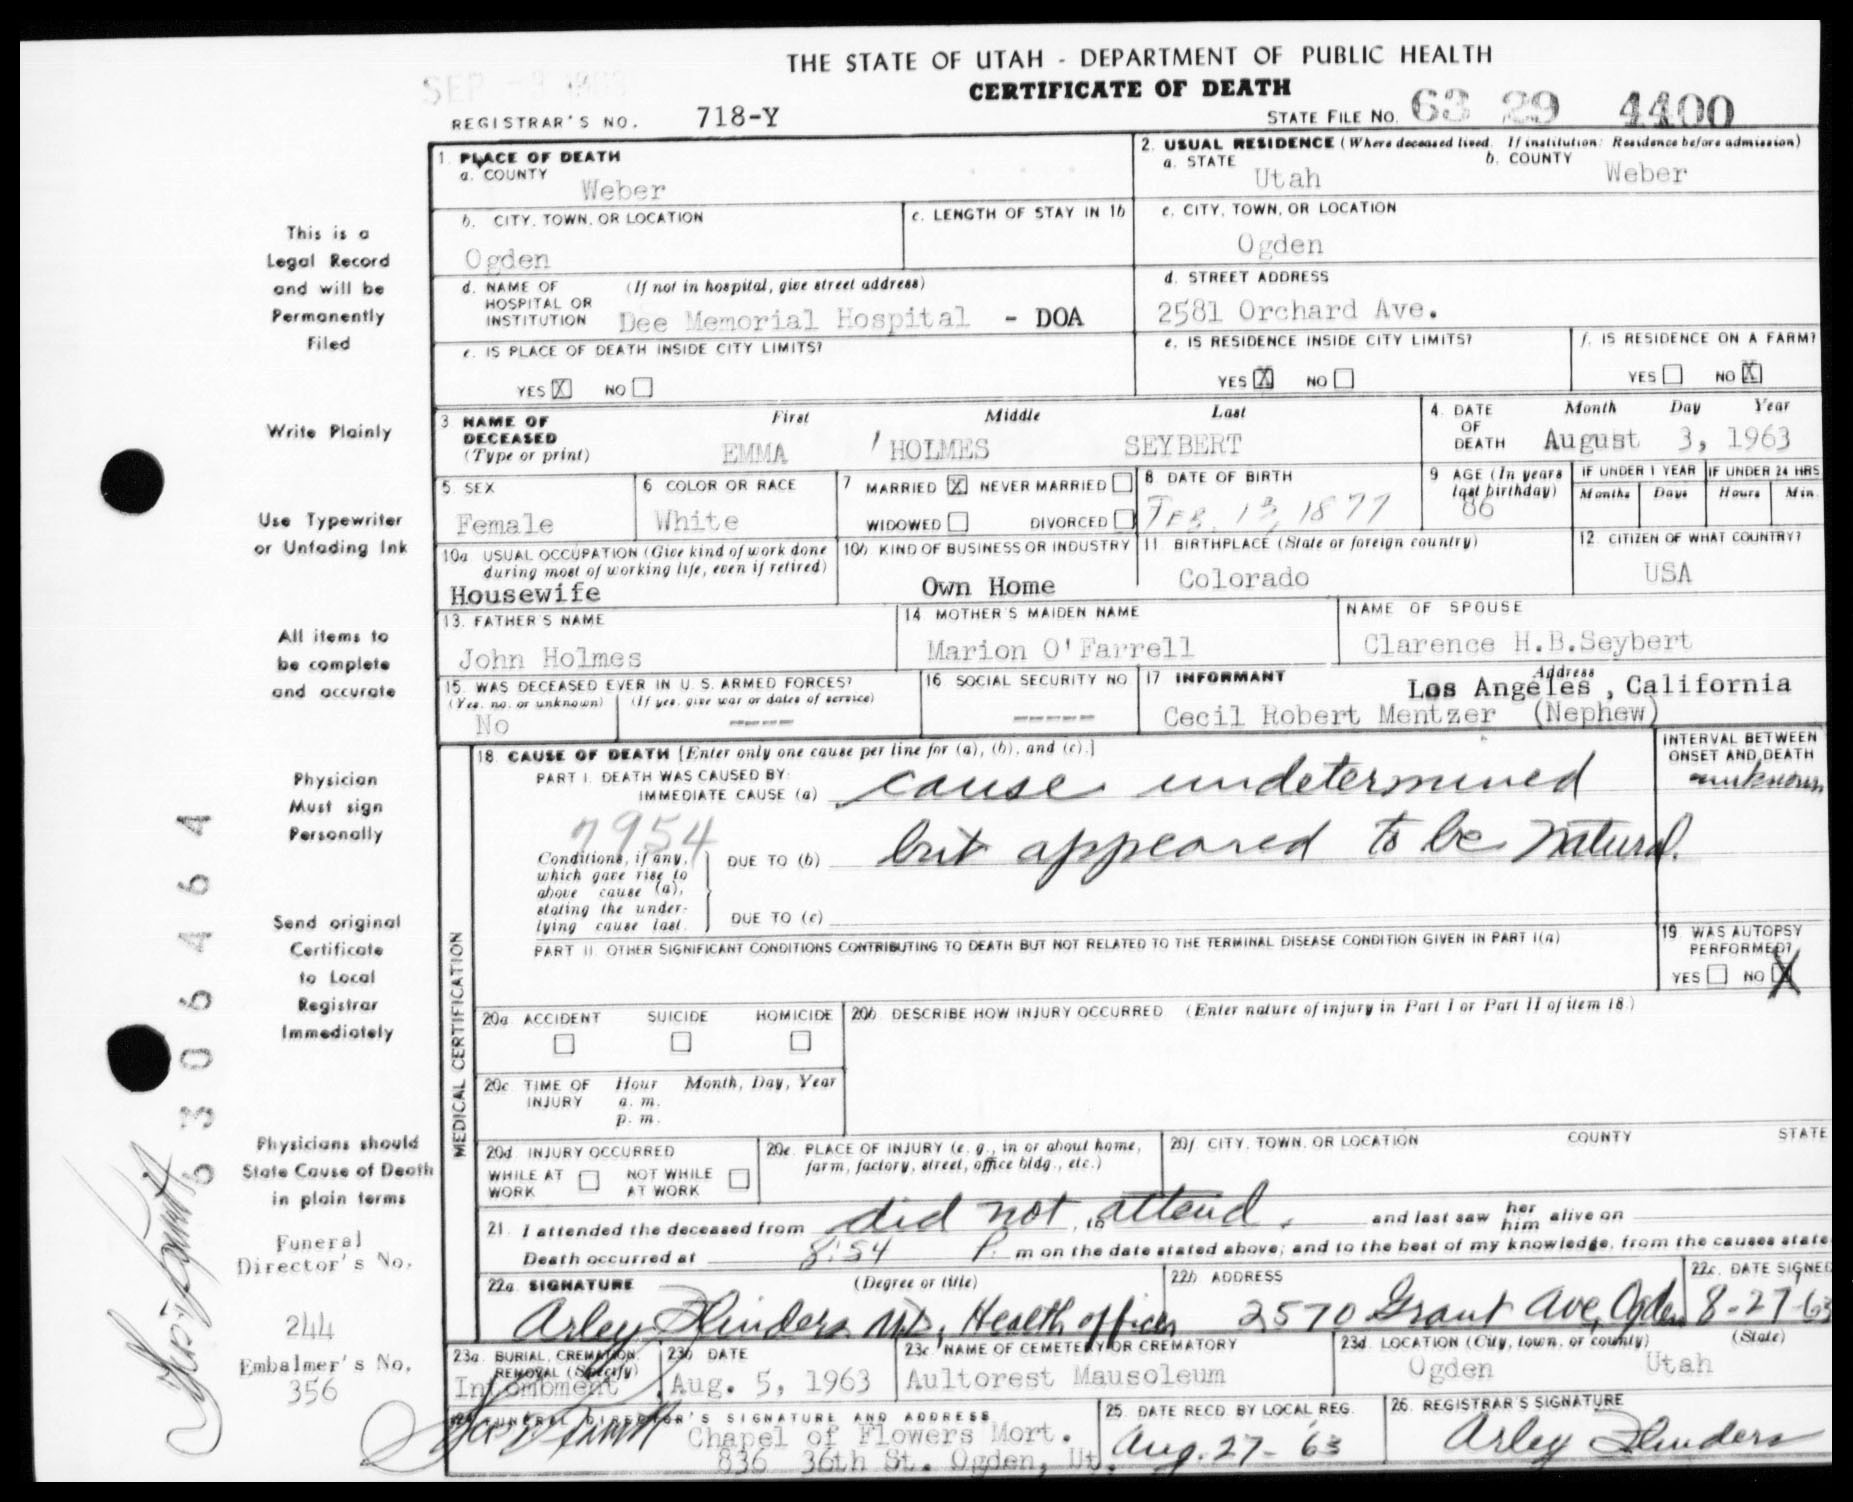 THE STATE OF UTAH - DEPARTMENT OF PUBLIC HEALTH
CERTIFICATE OF DEATH
REGISTRAR'S NO. 718-Y
STATE FILE NO. 63 29 4400
1. PLACE OF DEATH
a. COUNTY
Weber
2. USUAL RESIDENCE (Where deceased lived. If institution: Residence before admission)
a. STATE Utah b. COUNTY Weber
b. CITY, TOWN, OR LOCATION
Ogden
c. LENGTH OF STAY IN 1b
c. CITY, TOWN, OR LOCATION
Ogden
d. NAME OF HOSPITAL OR INSTITUTION (If not in hospital, give street address)
Dee Memorial Hospital - DOA
d. STREET ADDRESS
2581 Orchard Ave.
e. IS PLACE OF DEATH INSIDE CITY LIMITS?
YES X NO
e. IS RESIDENCE INSIDE CITY LIMITS?
YES X NO
f. IS RESIDENCE ON A FARM?
YES NO X
3 NAME OF DECEASED (Type or print)
First Middle Last
EMMA HOLMES SEYBERT
4. DATE OF DEATH
Month Day Year
August 3, 1963
5. SEX
Female
6 COLOR OR RACE
White
7 MARRIED X NEVER MARRIED
WIDOWED DIVORCED
8 DATE OF BIRTH
FEB. 13, 1877
9 AGE (In years last birthday)
86
IF UNDER 1 YEAR
Months Days
IF UNDER 24 HRS
Hours Min.
10a USUAL OCCUPATION (Give kind of work done during most of working life, even if retired)
Housewife
10b. KIND OF BUSINESS OR INDUSTRY
Own Home
11 BIRTHPLACE (State or foreign country)
Colorado
12. CITIZEN OF WHAT COUNTRY?
USA
13. FATHER'S NAME
John Holmes
14 MOTHER'S MAIDEN NAME
Marion O'Farrell
NAME OF SPOUSE
Clarence H.B.Seybert
15. WAS DECEASED EVER IN U. S. ARMED FORCES?
(Yes, no, or unknown) (If yes, give war or dates of service)
No -----
16 SOCIAL SECURITY NO
-----
17 INFORMANT Address
Los Angeles, California
Cecil Robert Mentzer (Nephew)
18. CAUSE OF DEATH [Enter only one cause per line for (a), (b), and (c).]
PART I. DEATH WAS CAUSED BY:
IMMEDIATE CAUSE (a) cause undetermined
7954
Conditions, if any, which gave rise to above cause (a), stating the underlying cause last.
DUE TO (b) but appeared to be natural.
DUE TO (c)
INTERVAL BETWEEN ONSET AND DEATH
unknown
PART II. OTHER SIGNIFICANT CONDITIONS CONTRIBUTING TO DEATH BUT NOT RELATED TO THE TERMINAL DISEASE CONDITION GIVEN IN PART I(a)
19. WAS AUTOPSY PERFORMED?
YES NO X
MEDICAL CERTIFICATION
20a. ACCIDENT SUICIDE HOMICIDE
20b. DESCRIBE HOW INJURY OCCURRED (Enter nature of injury in Part I or Part II of item 18.)
20c TIME OF INJURY Hour Month, Day, Year
a. m.
p. m.
20d INJURY OCCURRED
WHILE AT WORK NOT WHILE AT WORK
20e. PLACE OF INJURY (e. g., in or about home, farm, factory, street, office bldg., etc.)
20f. CITY, TOWN, OR LOCATION COUNTY STATE
21. I attended the deceased from did not, to attend. and last saw her him alive on
Death occurred at 8:54 P. m on the date stated above; and to the best of my knowledge, from the causes state
22a SIGNATURE (Degree or title)
Arley Flinders MD, Health officer
22b ADDRESS
2570 Grant Ave, Ogden
22c. DATE SIGNED
8-27-63
23a. BURIAL, CREMATION, REMOVAL (Specify)
Intombment
23b DATE
Aug. 5, 1963
23c NAME OF CEMETERY OR CREMATORY
Aultorest Mausoleum
23d. LOCATION (City, town, or county) (State)
Ogden Utah
FUNERAL DIRECTOR'S SIGNATURE AND ADDRESS
Chapel of Flowers Mort.
836 36th St. Ogden, Ut.
25. DATE RECD. BY LOCAL REG.
Aug. 27-63
26. REGISTRAR'S SIGNATURE
Arley Flinders
This is a
Legal Record
and will be
Permanently
Filed
Write Plainly
Use Typewriter
or Unfading Ink
All items to
be complete
and accurate
Physician
Must sign
Personally
Send original
Certificate
to Local
Registrar
Immediately
Physicians should
State Cause of Death
in plain terms
Funeral
Director's No.
244
Embalmer's No.
356
6306464